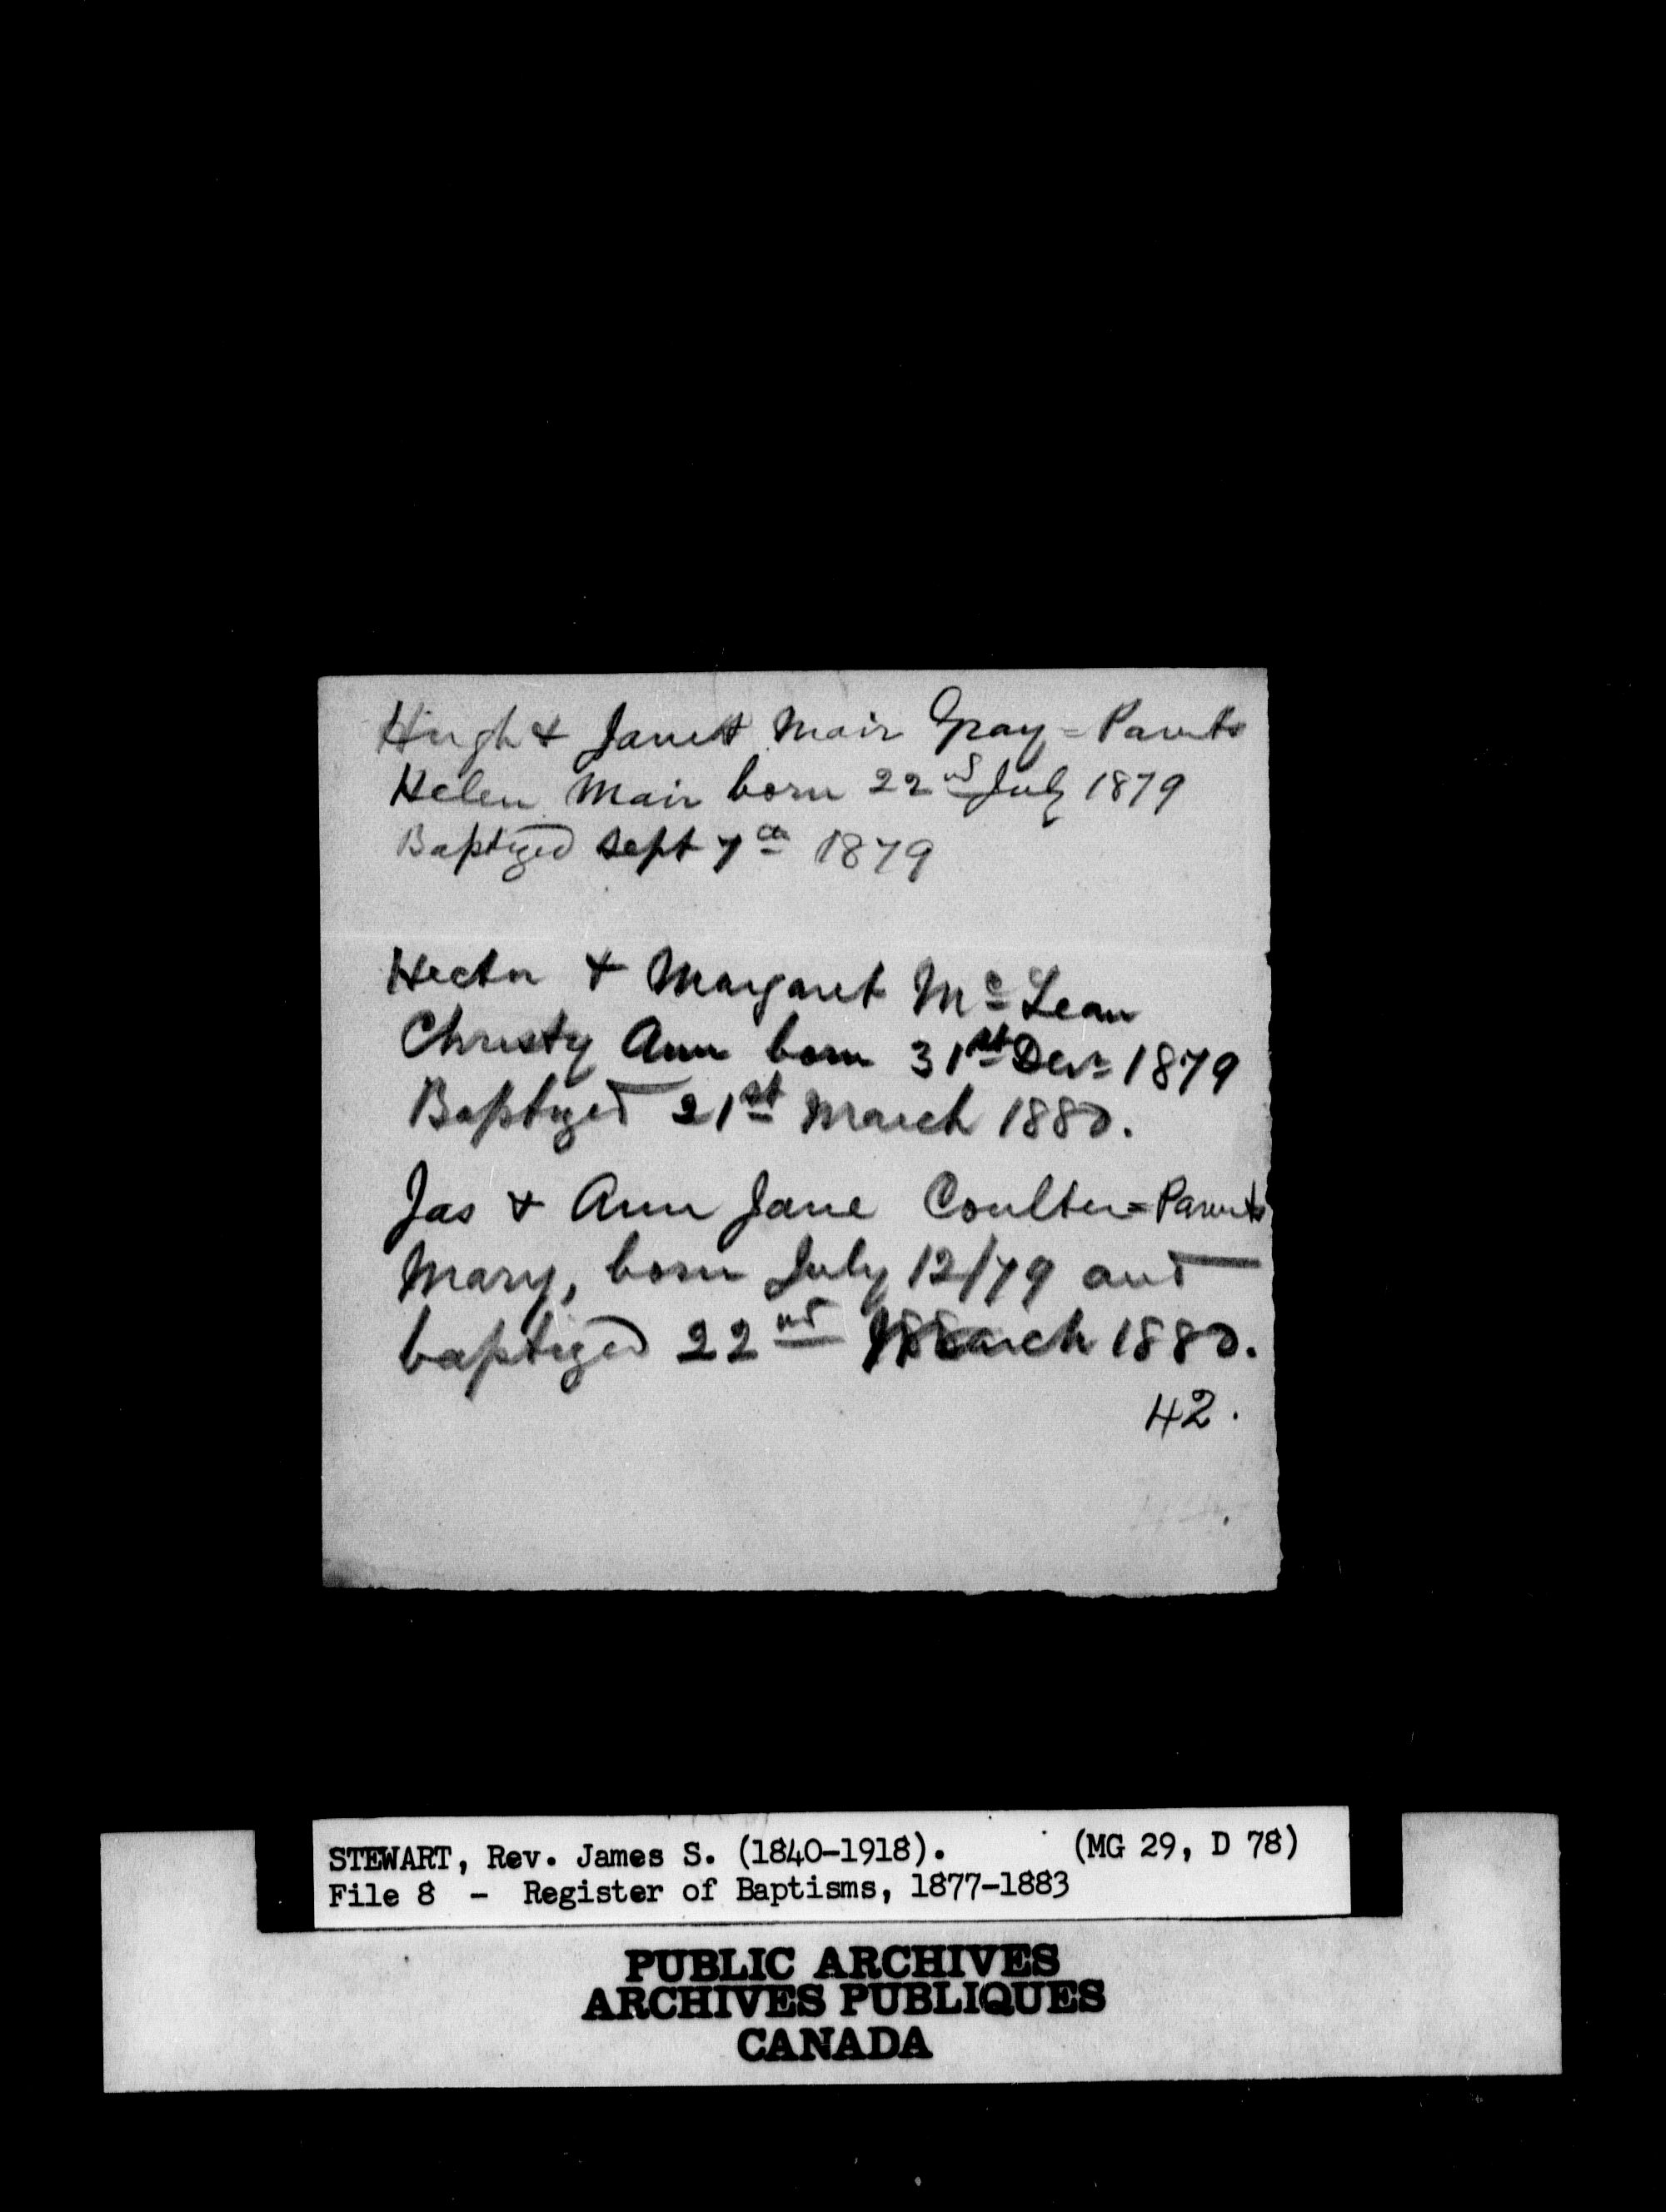 Hugh & Janett Mair Gray = Parents
Helen Mair born 22nd July 1879
Baptized Sept 7th 1879
Hector & Margaret Mc Lean
Christy Ann born 31st Decr 1879
Baptized 21st March 1880.
Jas & Ann Jane Coulter = Parents
Mary, born July 12/79 and
baptized 22nd March 1880.
42.
STEWART, Rev. James S. (1840-1918). (MG 29, D 78)
File 8 - Register of Baptisms, 1877-1883
PUBLIC ARCHIVES
ARCHIVES PUBLIQUES
CANADA